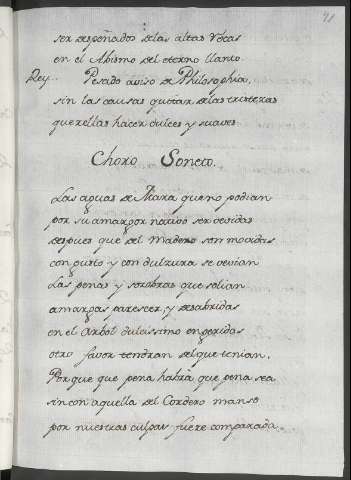 71
ser despeñados delas altas Rocas
en el Abismo del eterno llanto
Rey.. Pesado aviso de Philosophia,
sin las causas quitar delas tristezas
querellas hacer dulces y suaves
Choro Soneto.
Las aguas de Mara que no podian
por su amargor nativo ser bevidas
despues que del Madero son tocadas
con gusto y con dulzura se bevian
Las penas y sozobras que solian
amargas parescer, y desabridas
en el Arbol dulcissimo enxeridas
otro favor tendran del que tenian.
Por que que pena habrà que pena sea
si con aquella del Cordero manso
por nuestras culpas fuere comparada.